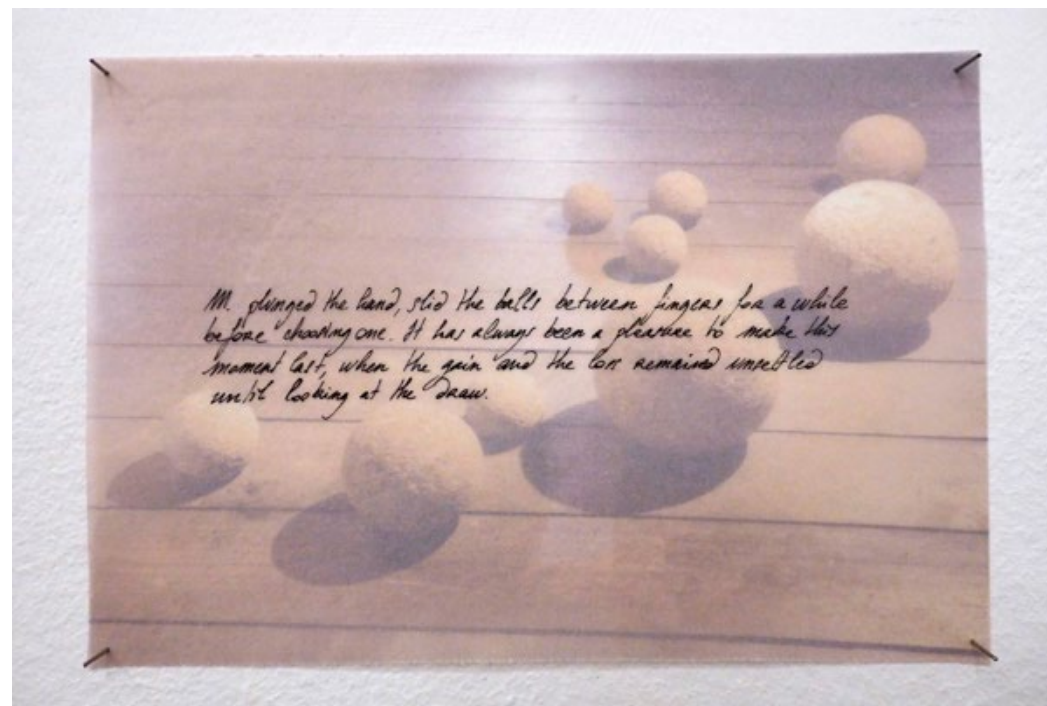 M. plunged the hand, slid the balls between fingers for a while
before choosing one. It has always been a pleasure to make this
moment last, when the gain and the loss remained unsettled
until looking at the draw.